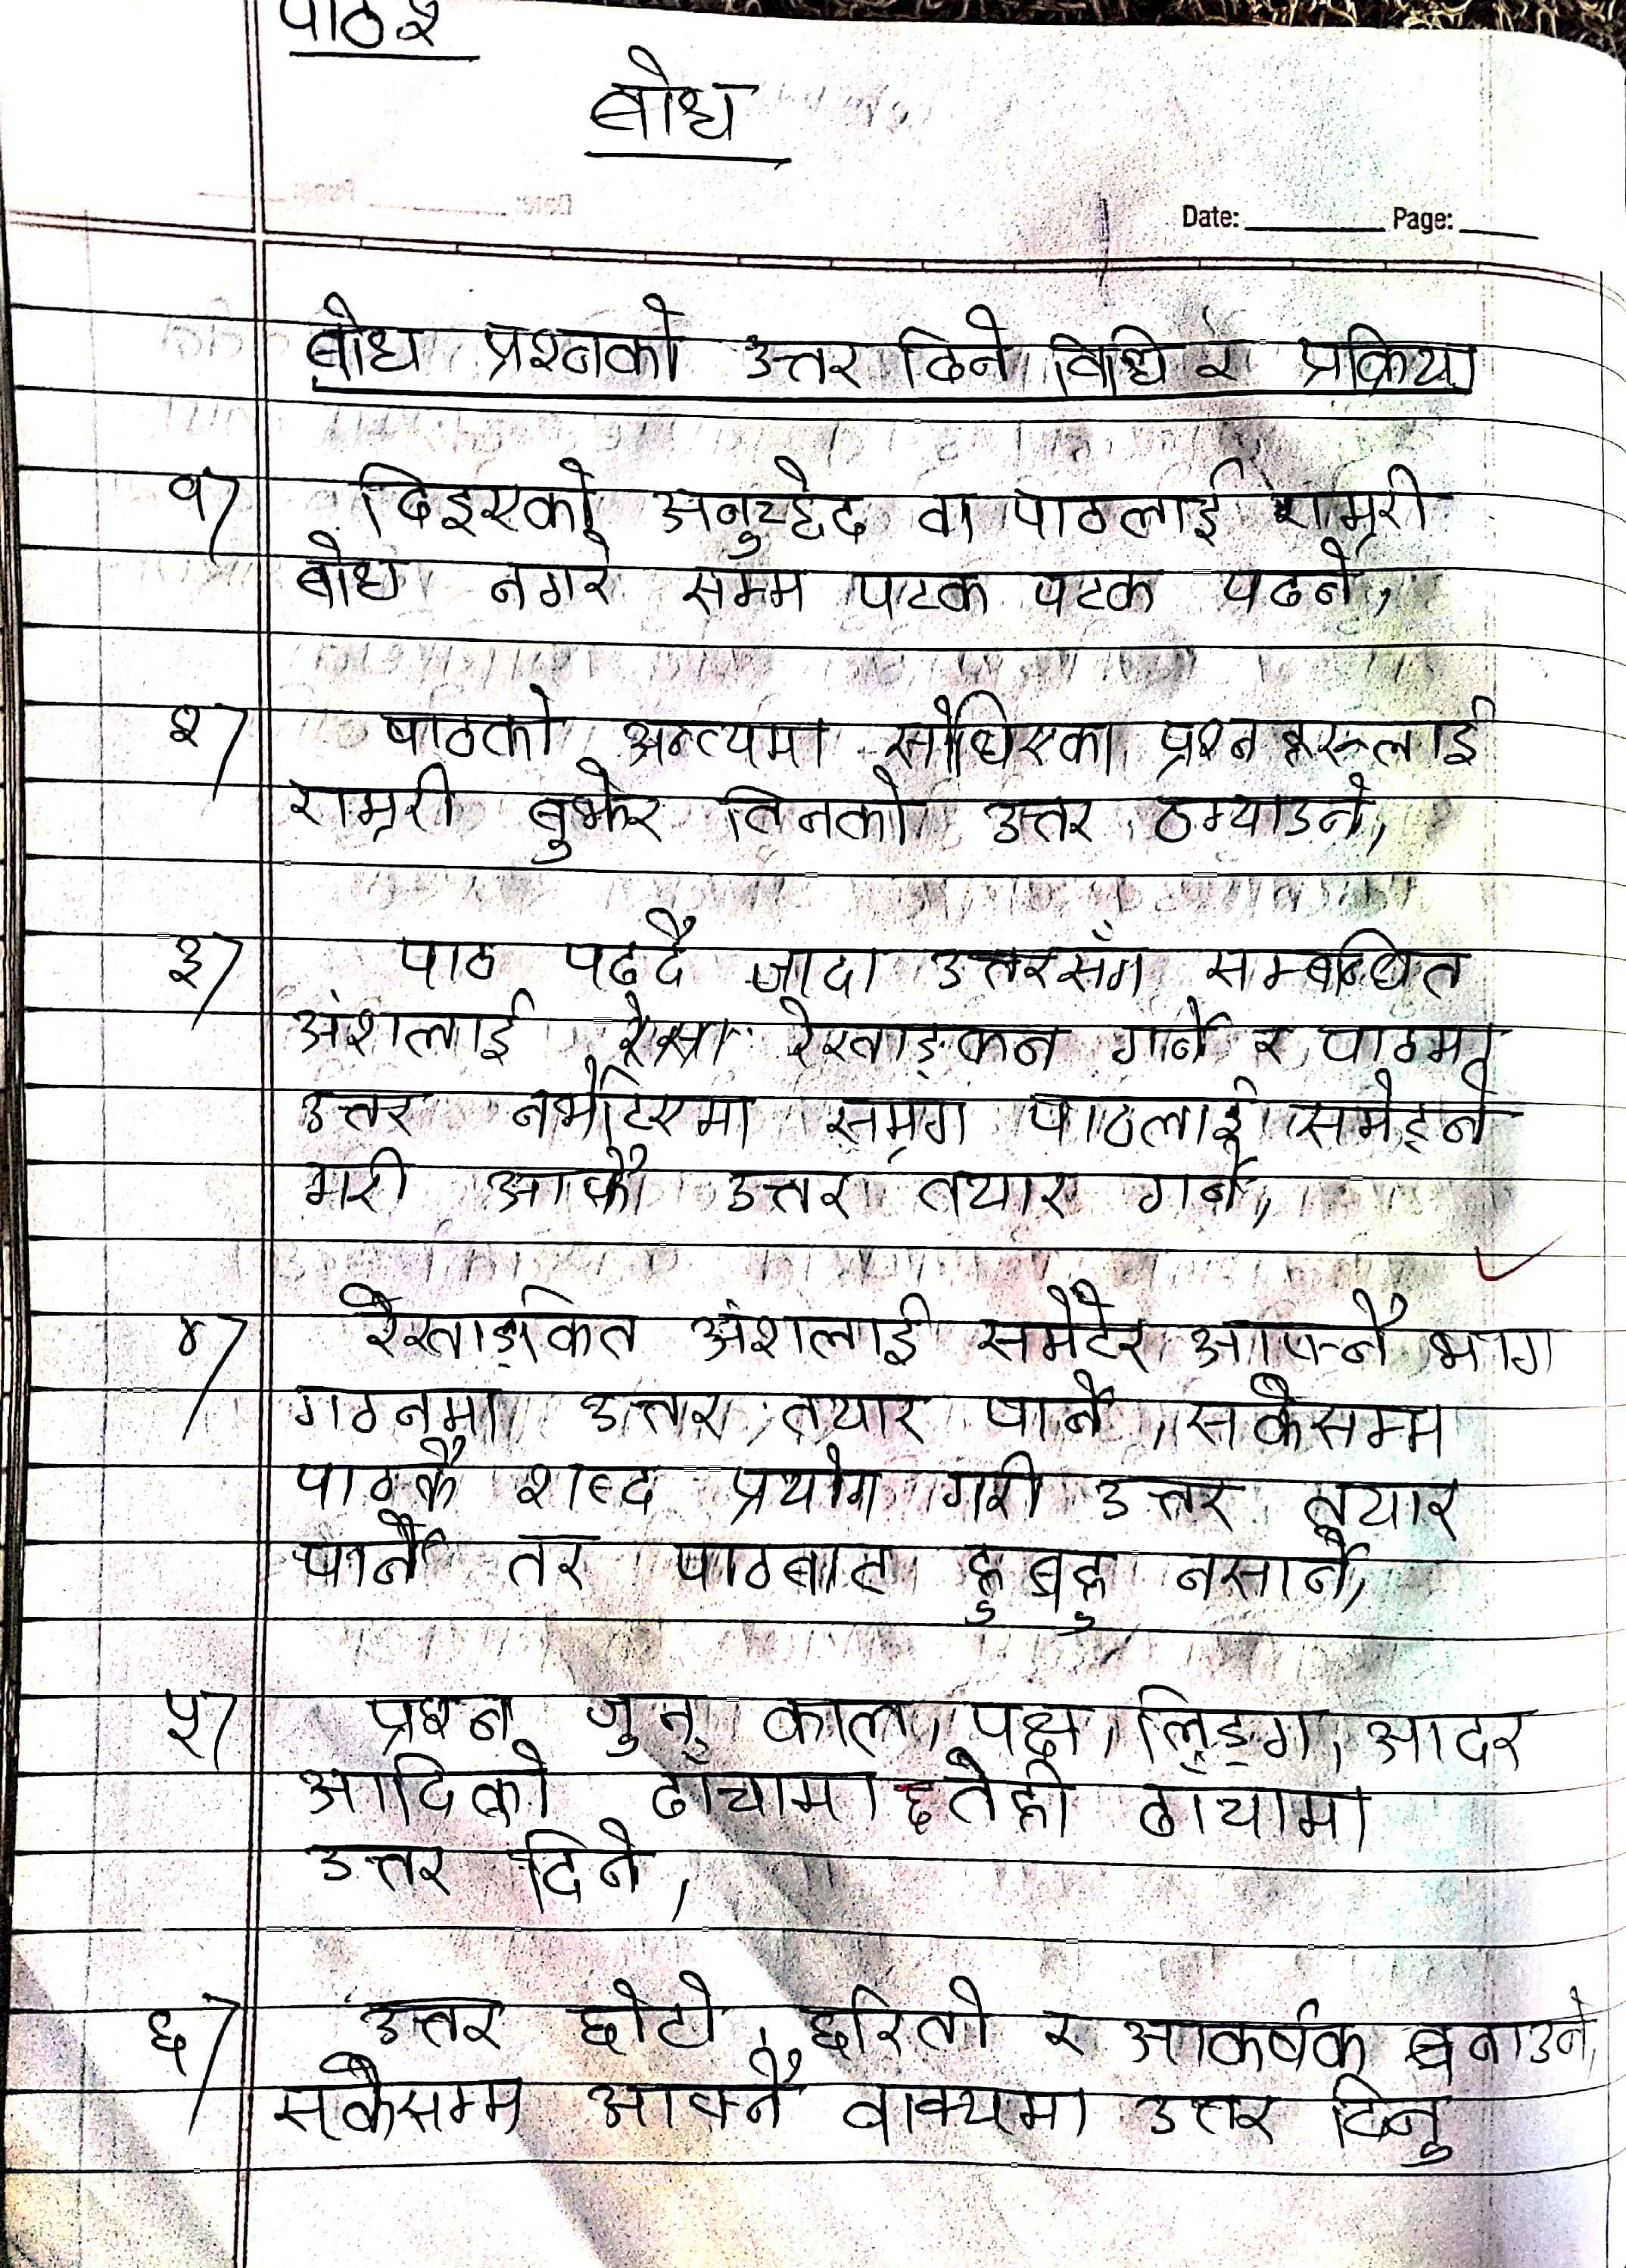 पाठ २
बोध
Date: Page:
बोध प्रश्नको उत्तर दिने विधि र प्रक्रिया
१) दिइएको अनुच्छेद वा पाठलाई राम्ररी
बोध नगरे सम्म पटक पटक पढ्ने,
२) पाठको अन्त्यमा सोधिएका प्रश्न हरुलाई
राम्ररी बुझेर तिनको उत्तर ठम्याउने,
३) पाठ पढ्दै जादा उत्तरसँग सम्बन्धित
अंशलाई रेखाङ्कन गर्ने र पाठमा
उत्तर नभेटिएमा समग्र पाठलाई समेट्ने
गरी आफै उत्तर तयार गर्ने,
४) रेखाङ्कित अंशलाई समेटेर आफ्नै भाग
गठनमा उत्तर तयार पार्ने, सकेसम्म
पाठकै शब्द प्रयोग गरी उत्तर तयार
पार्ने तर पाठबाट हुबहु नसार्ने,
५) प्रश्न जुन काल, पक्ष, लिङ्ग, आदर
आदिको ढाँचामा छ तेही ढाँचामा
उत्तर दिने,
६) उत्तर छोटो, छरितो र आकर्षक बनाउने,
सकेसम्म आफ्नै वाक्यमा उत्तर दिनु